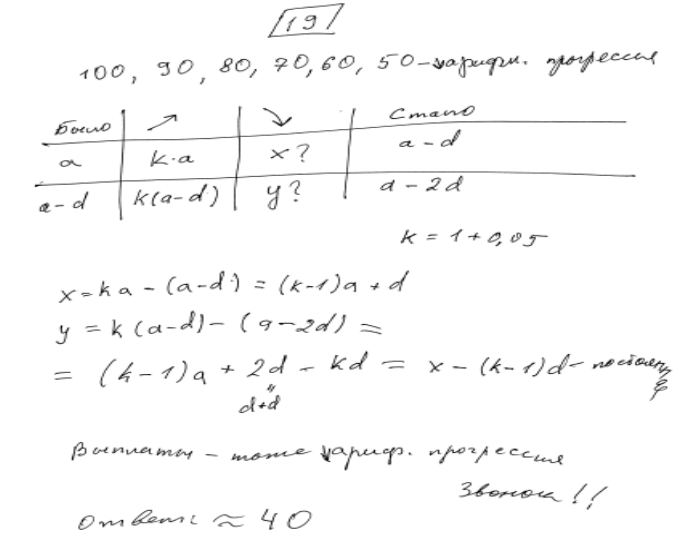 19
100, 90, 80, 70, 60, 50 – арифм. прогрессия
Было ↗ ↘ Стало
a k·a x? a – d
a – d k(a–d) y? a – 2d
k = 1 + 0,05
x = ka – (a–d) = (k–1)a + d
y = k(a–d) – (a–2d) =
= (k–1)a + 2d – kd = x – (k–1)d –
d+d
Выплаты – тоже арифм. прогрессия
Звонок!!
Ответ: ≈ 40